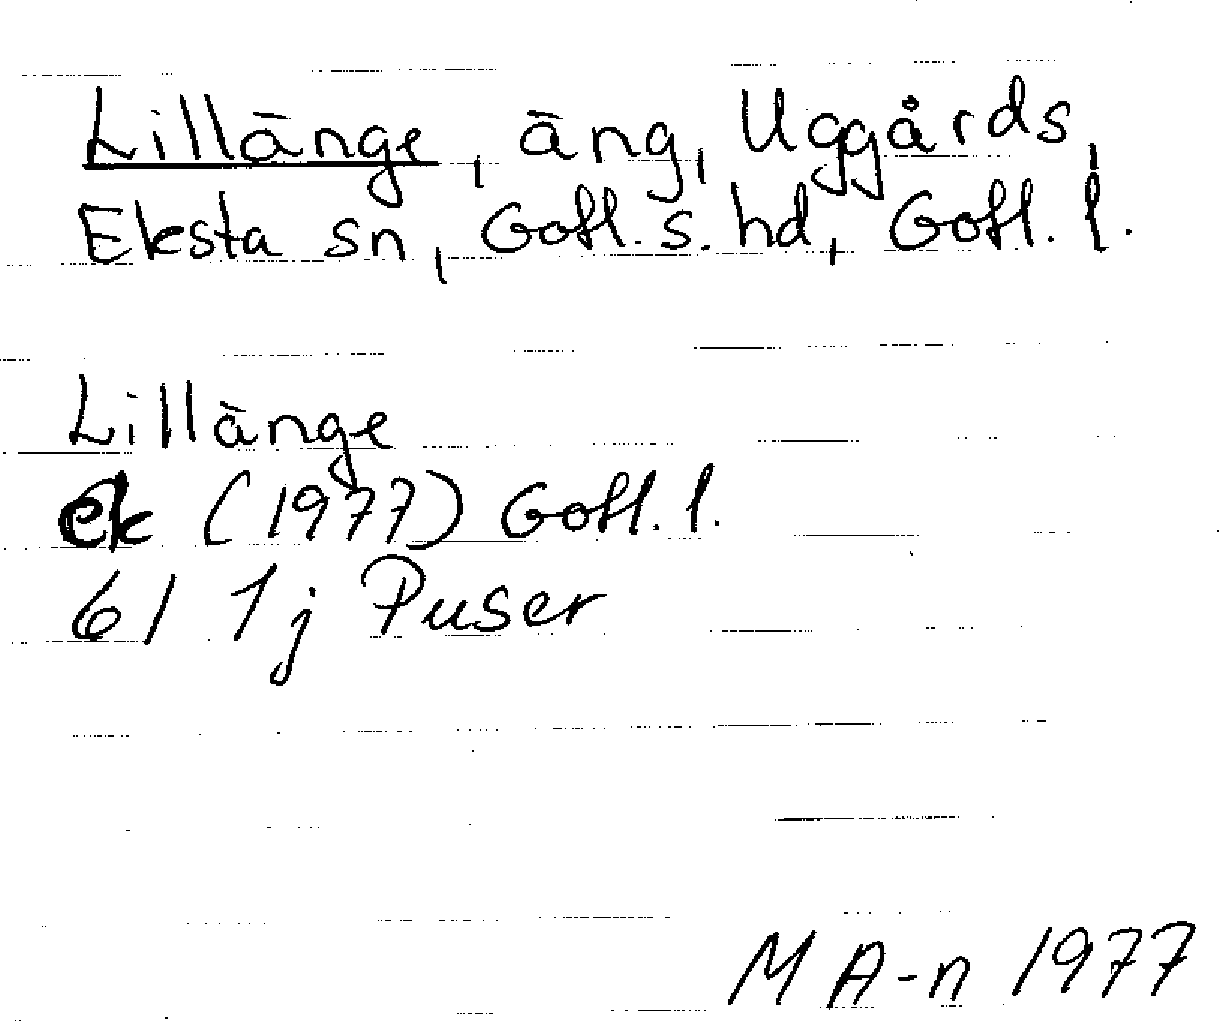 Lillänge, äng, Uggårds,
Eksta sn, Gotl. s. hd, Gotl. l.
Lillänge
ek (1977) Gotl. l.
6I 1j Puser
M A-n 1977